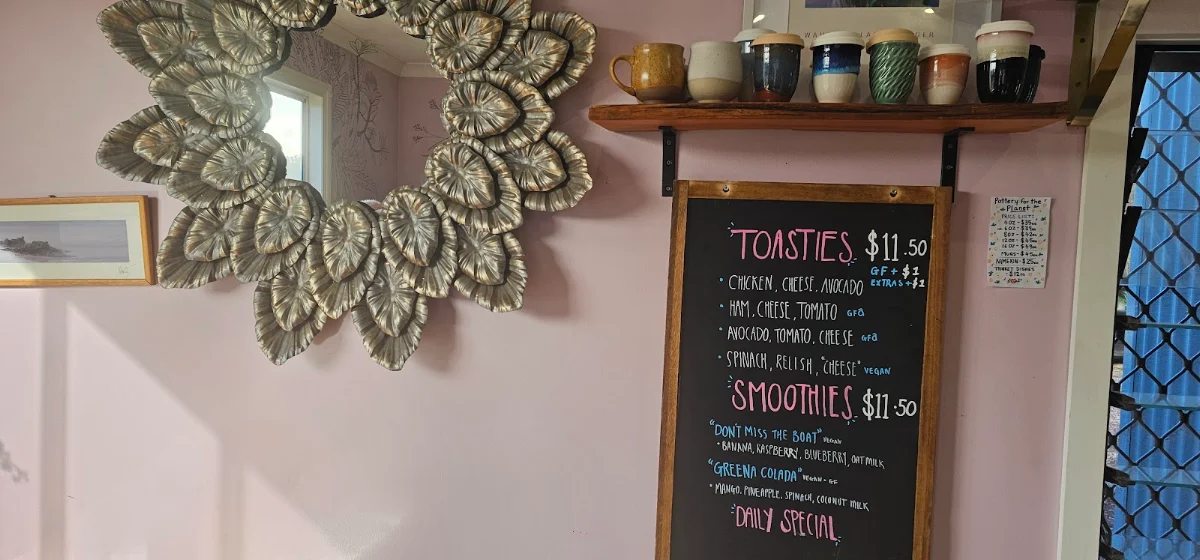 TOASTIES $11.50
GF + $1
EXTRAS + $1
• CHICKEN, CHEESE, AVOCADO
• HAM, CHEESE, TOMATO GFO
• AVOCADO, TOMATO, CHEESE GFO
• SPINACH, RELISH, "CHEESE" VEGAN
SMOOTHIES $11.50
"DON'T MISS THE BOAT" VEGAN
• BANANA, RASPBERRY, BLUEBERRY, OAT MILK
"GREENA COLADA" VEGAN - GF
• MANGO, PINEAPPLE, SPINACH, COCONUT MILK
DAILY SPECIAL
Pottery for the
Planet
PRICE LIST: